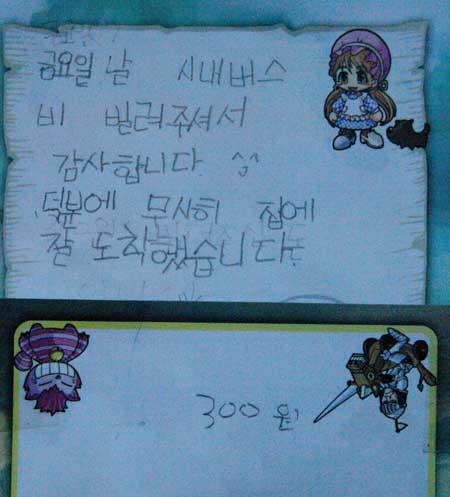 금요일 날 시내버스
비 빌려주셔서
감사합니다 ^^
덕분에 무사히 집에
잘 도착했습니다.
300원